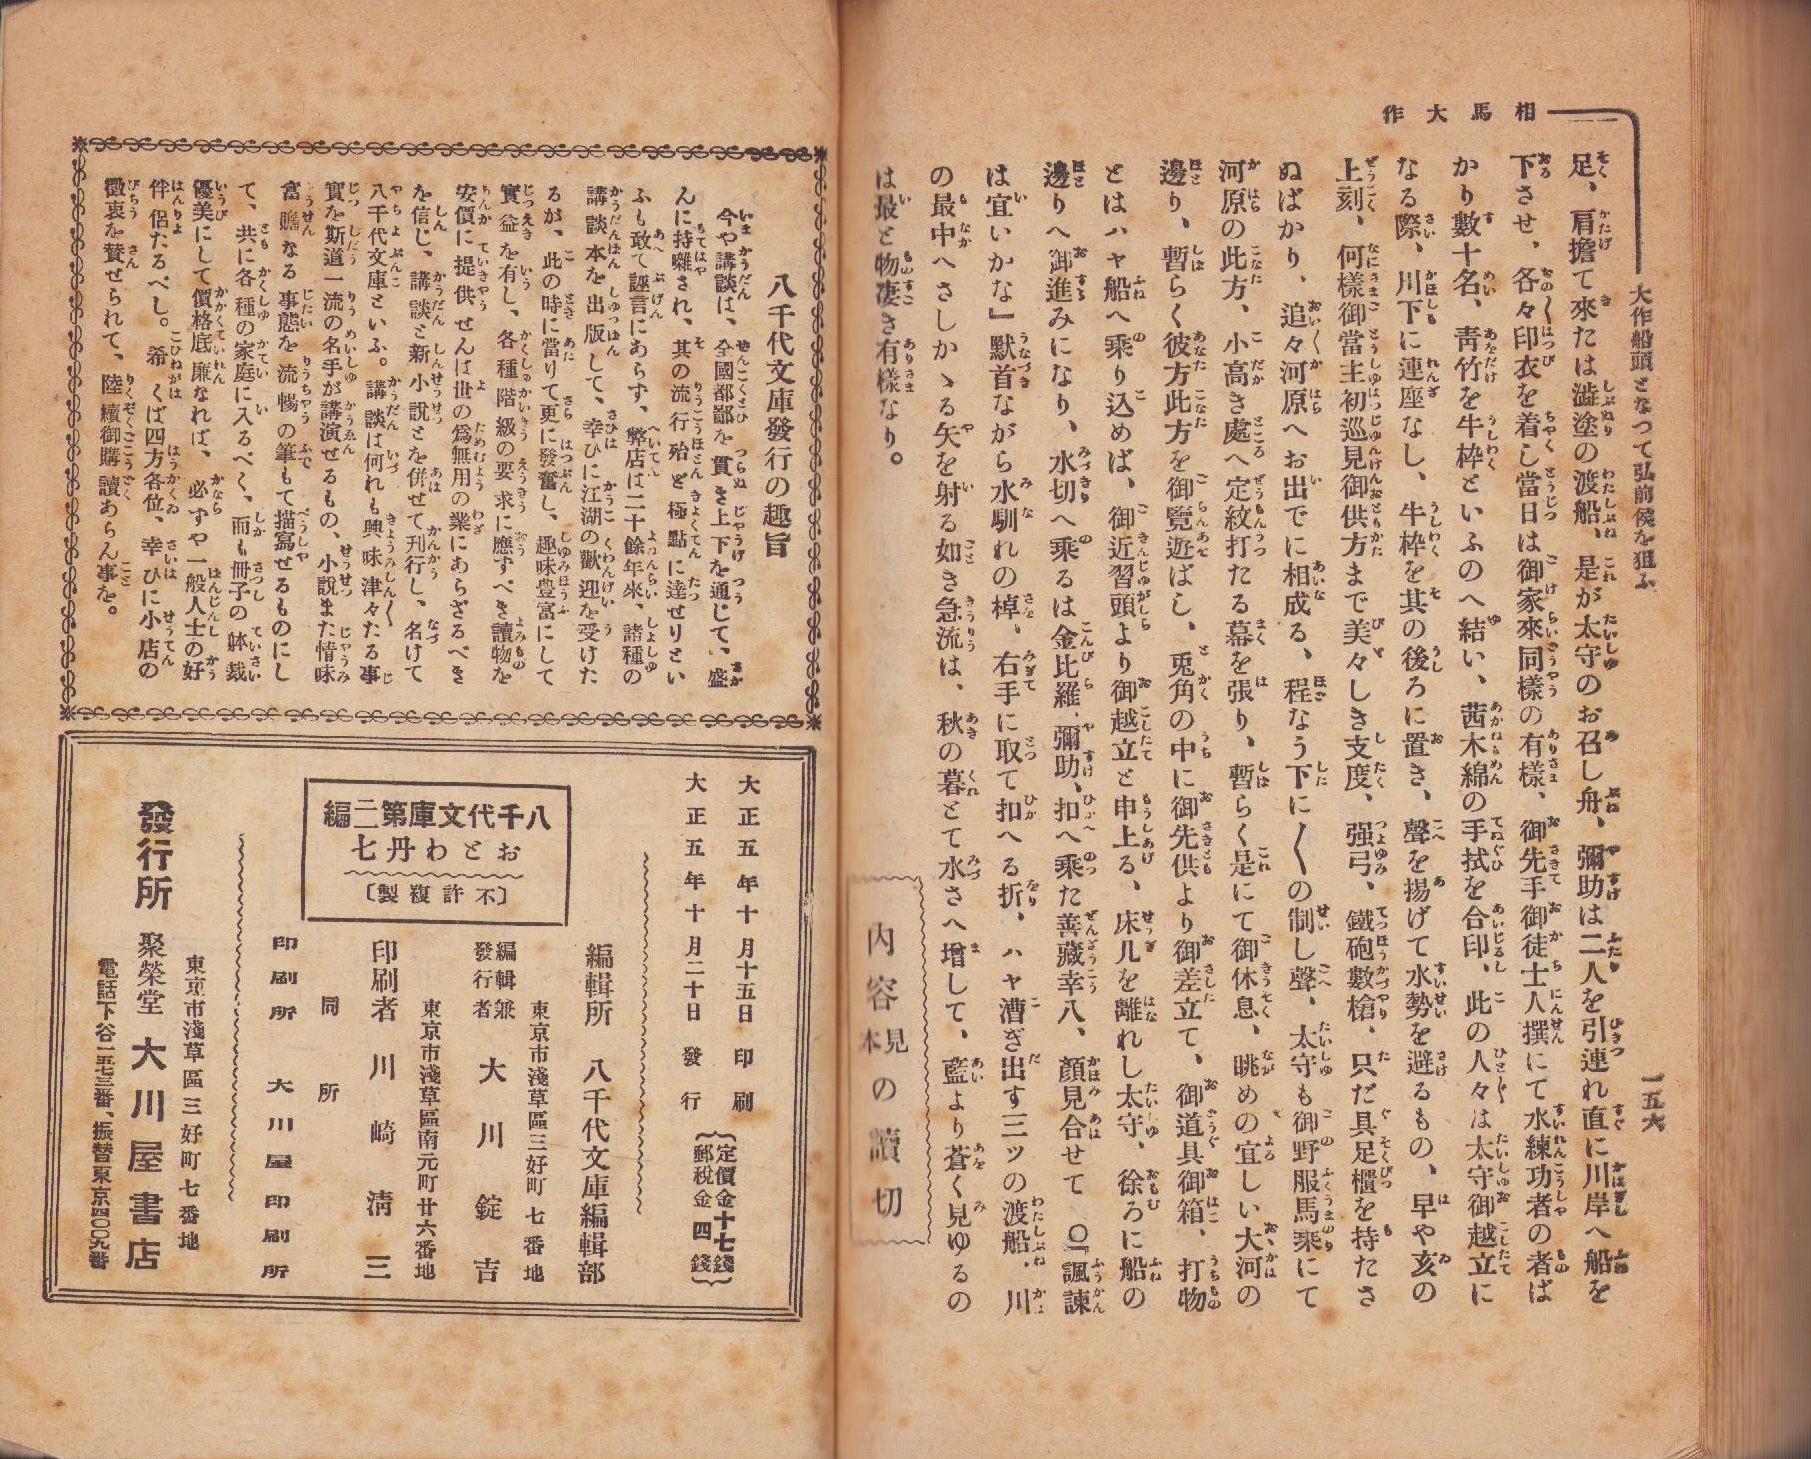 相馬大作
大作船頭となつて弘前侯を狙ふ
一五六
足、肩擔て來たは澁塗の渡船、是が太守のお召し舟、彌助は二人を引連れ直に川岸へ船を
下させ、各々印衣を着し當日は御家來同樣の有樣、御先手御徒士人撰にて水練功者の者ば
かり數十名、靑竹を牛枠といふのへ結い、茜木綿の手拭を合印、此の人々は太守御越立に
なる際、川下に連座なし、牛枠を其の後ろに置き、聲を揚げて水勢を避るもの、早や亥の
上刻、何樣御當主初巡見御供方まで美々しき支度、强弓、鐵砲數槍、只だ具足櫃を持たさ
ぬばかり、追々河原へお出でに相成る、程なう下に〱の制し聲、太守も御野服馬乘にて
河原の此方、小高き處へ定紋打たる幕を張り、暫らく是にて御休息、眺めの宜しい大河の
邊り、暫らく彼方此方を御覽遊ばし、兎角の中に御先供より御差立て、御道具御箱、打物
とはハヤ船へ乘り込めば、御近習頭より御越立と申上る、床几を離れし太守、徐ろに船の
邊りへ御進みになり、水切へ乘るは金比羅、彌助、扣へ乘た善藏幸八、顏見合せて〇『諷諫
は宜いかな」默首ながら水馴れの棹、右手に取て扣へる折、ハヤ漕ぎ出す三ツの渡船、川
の最中へさしかゝる矢を射る如き急流は、秋の暮とて水さへ增して、藍より蒼く見ゆるの
は最と物凄き有樣なり。
內容見本の讀切
八千代文庫發行の趣旨
今や講談は、全國都鄙を貫き上下を通じて、盛
んに持囃され、其の流行殆ど極點に達せりとい
ふも敢て誣言にあらず、弊店は二十餘年來、諸種の
講談本を出版して、幸ひに江湖の歡迎を受けた
るが、此の時に當りて更に發奮し、趣味豊富にして
實益を有し、各種階級の要求に應ずべき讀物を
安價に提供せんは世の爲無用の業にあらざるべき
を信じ、講談と新小說とを併せて刊行し、名けて
八千代文庫といふ。講談は何れも興味津々たる事
實を斯道一流の名手が講演せるもの、小說また情味
富贍なる事態を流暢の筆もて描寫せるものにし
て、共に各種の家庭に入るべく、而も冊子の體裁
優美にして價格底廉なれば、必ずや一般人士の好
伴侶たるべし。希くば四方各位、幸ひに小店の
微衷を賛せられて、陸續御購讀あらん事を。
大正五年十月十五日印刷
大正五年十月二十日發行
定價金十七錢
郵稅金四錢
八千代文庫第二編
おとわ丹七
〔不許複製〕
編輯所 八千代文庫編輯部
東京市淺草區三好町七番地
編輯兼發行者 大川錠吉
東京市淺草區南元町廿六番地
印刷者 川崎淸三
同所
印刷所 大川屋印刷所
東京市淺草區三好町七番地
發行所 聚榮堂 大川屋書店
電話下谷一五七三番、振替東京四〇〇九番